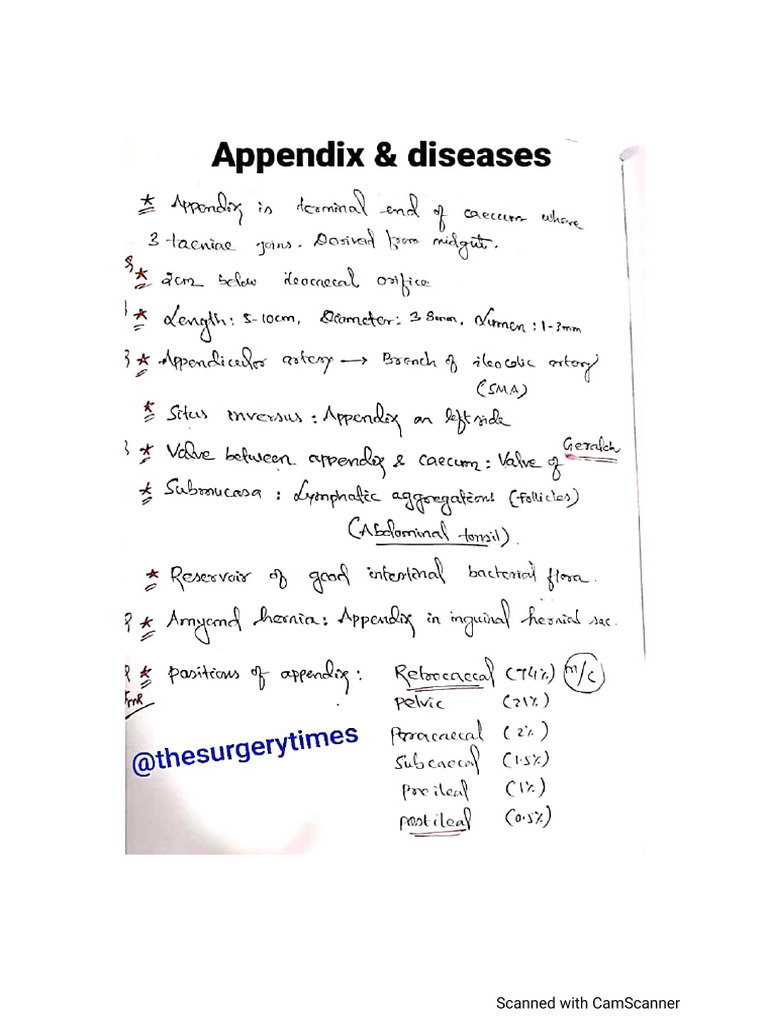 Appendix & diseases
* Appendix is terminal end of caecum where
3 taeniae joins. Derived from midgut.
* 2cm below ileocaecal orifice
* Length: 5-10cm, Diameter: 3 8mm, Lumen: 1-3mm
* Appendicular artery → Branch of ileocolic artery
(SMA)
* Situs inversus: Appendix on left side
* Valve between appendix & caecum: Valve of Geralch
* Submucasa: Lymphatic aggregations (follicles)
(Abdominal tonsil).
* Reservoir of good intestinal bacterial flora.
* Amyand hernia: Appendix in inguinal hernial sac.
* positions of appendix: Retrocaecal (74%) m/c
pelvic (21%)
Paracaecal (2%)
Subcaecal (1.5%)
preileal (1%)
postileal (0.5%)
@thesurgerytimes
Scanned with CamScanner